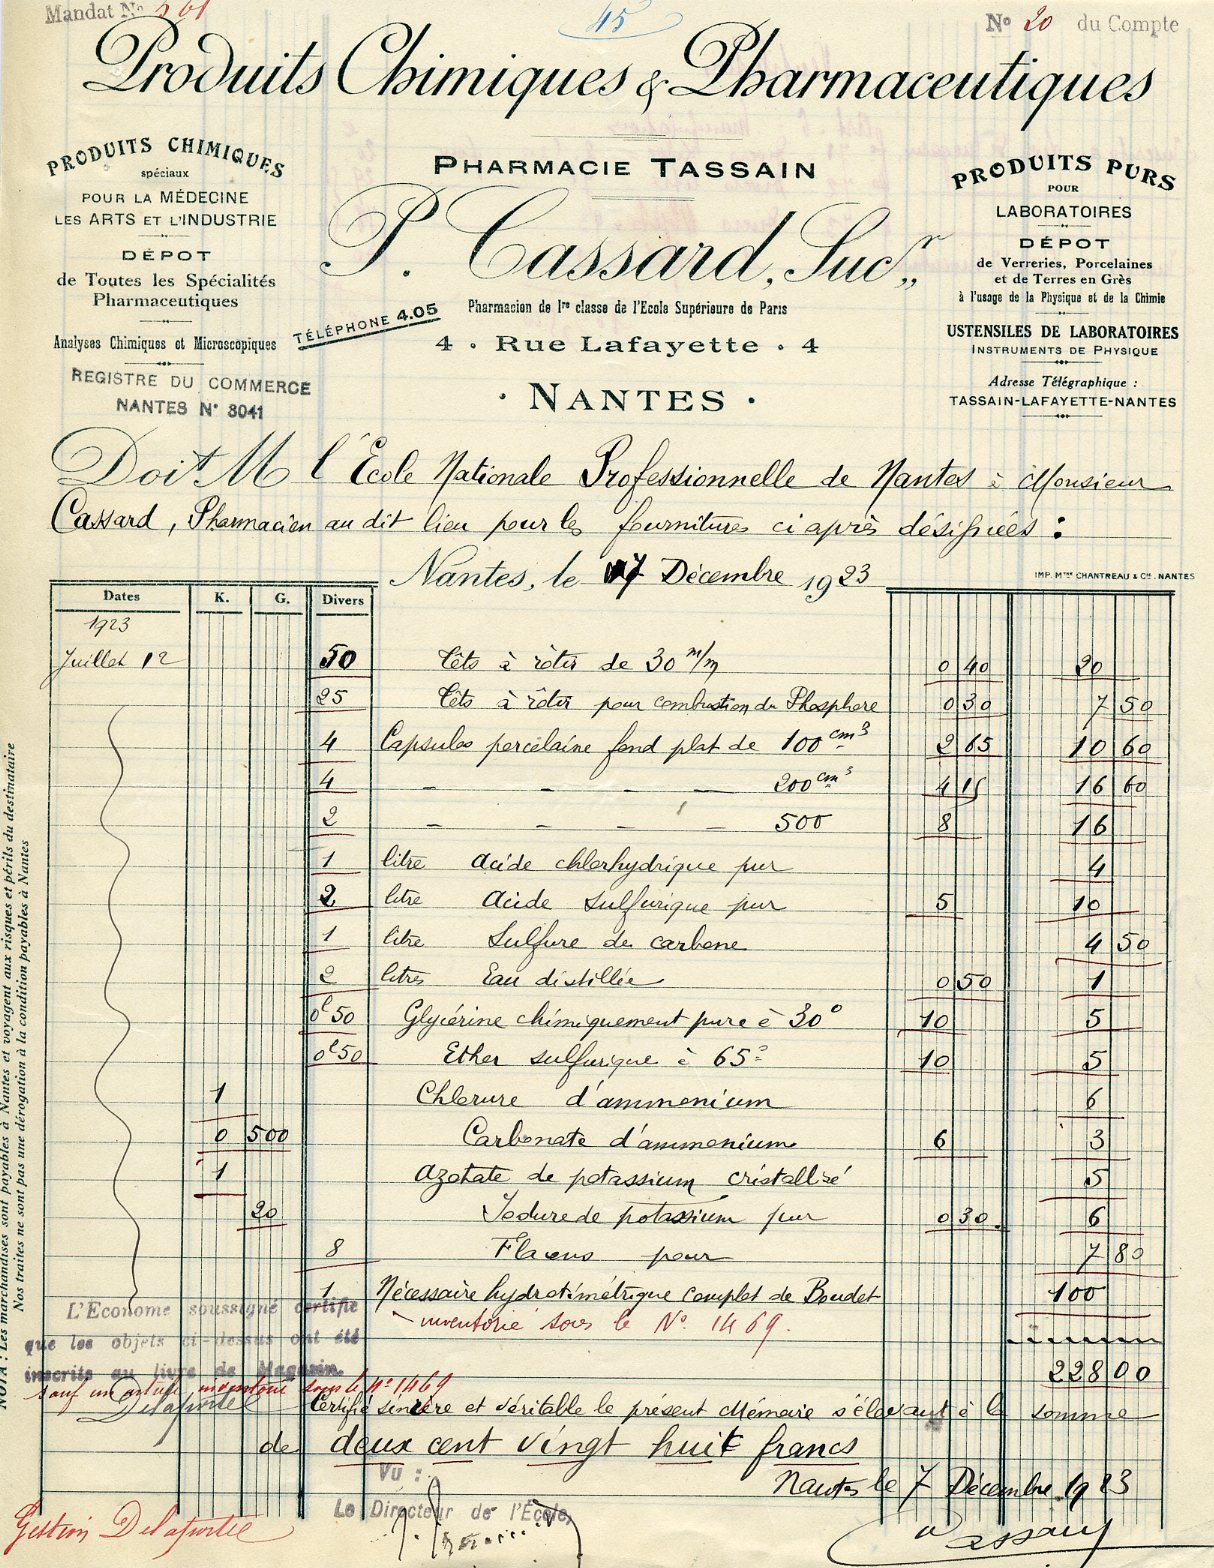 Mandat No
45
No 20 du Compte
Produits Chimiques & Pharmaceutiques
PRODUITS CHIMIQUES
spéciaux
POUR LA MÉDECINE
LES ARTS ET L'INDUSTRIE
DÉPOT
de Toutes les Spécialités
Pharmaceutiques
Analyses Chimiques et Microscopiques
REGISTRE DU COMMERCE
NANTES N° 3041
PHARMACIE TASSAIN
P. Cassard, Sucr
Pharmacien de 1re classe de l'Ecole Supérieure de Paris
TÉLÉPHONE 4.05
4 . Rue Lafayette . 4
· NANTES ·
PRODUITS PURS
POUR
LABORATOIRES
DÉPOT
de Verreries, Porcelaines
et de Terres en Grès
à l'usage de la Physique et de la Chimie
USTENSILES DE LABORATOIRES
INSTRUMENTS DE PHYSIQUE
Adresse Télégraphique :
TASSAIN-LAFAYETTE-NANTES
Doit M l'École Nationale Professionnelle de Nantes à Monsieur
Cassard, Pharmacien au dit lieu pour les fournitures ci après désignées :
Nantes, le 7 Décembre 1923
IMP. Mces CHANTREAU & Cie. NANTES
Dates K. G. Divers
1923
Juillet 12 50 Têts à rôtir de 30 m/m 0 40 20
25 Têts à rôtir pour combustion du Phosphore 0 30 7 50
4 Capsules porcelaine fond plat de 100 cm3 2 65 10 60
4 – – – – 200 cm3 4 15 16 60
2 – – – – 500 8 16
1 litre acide chlorhydrique pur 4
2 litre acide sulfurique pur 5 10
1 litre Sulfure de carbone 4 50
2 litres Eau distillée 0 50 1
0l50 Glycérine chimiquement pure à 30° 10 5
0l50 Ether sulfurique à 65° 10 5
1 Chlorure d'ammonium 6
0 500 Carbonate d'ammonium 6 3
1 Azotate de potassium cristallisé 5
20 Iodure de potassium pur 0 30 6
8 Flacons pour 7 80
1 Nécessaire hydrotimétrique complet de Boudet 100
inventorié sous le N° 1469.
L'Econome soussigné certifie
que les objets ci-dessus ont été
inscrits au livre de Magasin.
sauf un article inventorié sous le n° 1469
228 00
Certifié sincère et véritable le présent Mémoire s'élevant à la somme
de deux cent vingt huit francs
Nantes le 7 Décembre 1923
Vu :
Le Directeur de l'École,
Gestion
Cassard
NOTA : Les marchandises sont payables à Nantes et voyagent aux risques et périls du destinataire
Nos traites ne sont pas une dérogation à la condition payables à Nantes